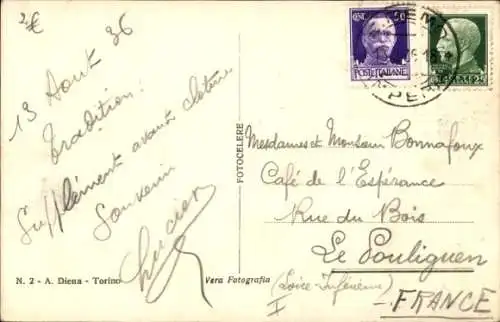 2€
13 Août 36
Tradition!
Supplément avant clôture
Souvenir
Lucien
N. 2 - A. Diena - Torino
Vera Fotografia
FOTOCELERE
CENT. 50
POSTE ITALIANE
Mesdames et Monsieur Bonnafoux
Café de l'Espérance
Rue du Bois
Le Pouliguen
(Loire Inférieure)
I
FRANCE